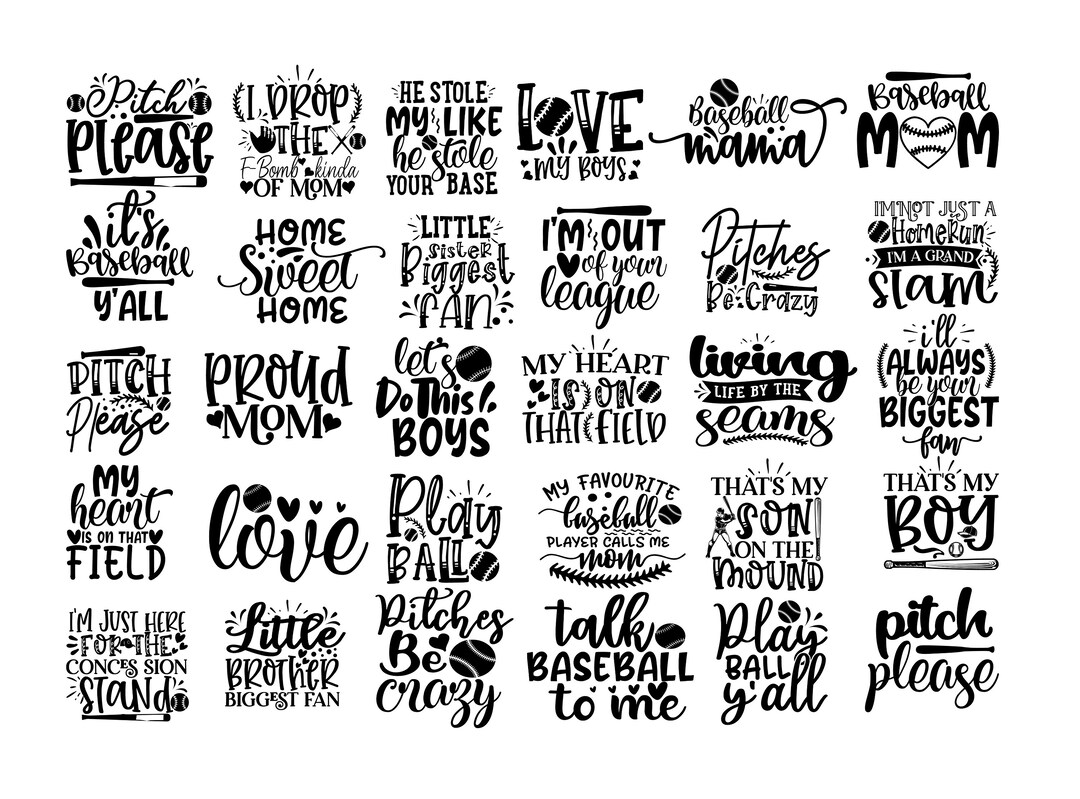 Pitch
Please
I DROP
THE
F-Bomb kinda
OF MOM
HE STOLE
MY LIKE
he stole
YOUR BASE
LOVE
MY BOYS
Baseball
mama
Baseball
MOM
it's
Baseball
Y'ALL
HOME
Sweet
HOME
LITTLE
Sister
Biggest
FAN
I'M OUT
of your
league
Pitches
Be Crazy
I'M NOT JUST A
HomeRun
I'M A GRAND
slam
PITCH
Please
PROUD
MOM
let's
Do This
BOYS
MY HEART
IS ON
THAT FIELD
living
LIFE BY THE
seams
i'll
ALWAYS
be your
BIGGEST
fan
MY
heart
IS ON THAT
FIELD
love
Play
BALL
MY FAVOURITE
baseball
PLAYER CALLS ME
mom
THAT'S MY
SON
ON THE
MOUND
THAT'S MY
BOY
I'M JUST HERE
FOR THE
CONCES SION
STAND
Little
BROTHER
BIGGEST FAN
Pitches
Be
crazy
talk
BASEBALL
to me
Play
BALL
y'all
pitch
please